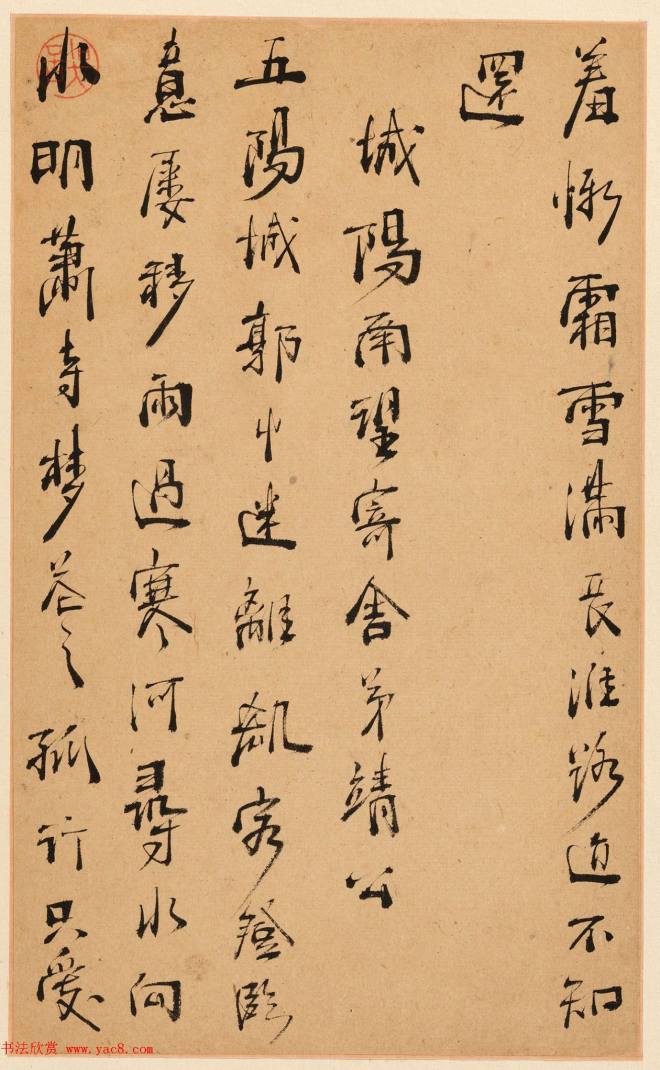 羞慚霜雪滿長淮路不知
還
城陽南望寄舍弟靖公
五陽城郭屮迷離飢客登臨
意屢移雨過寒河尋水向
水明蕭寺夢孤行只愛
书法欣赏 www.yac8.com